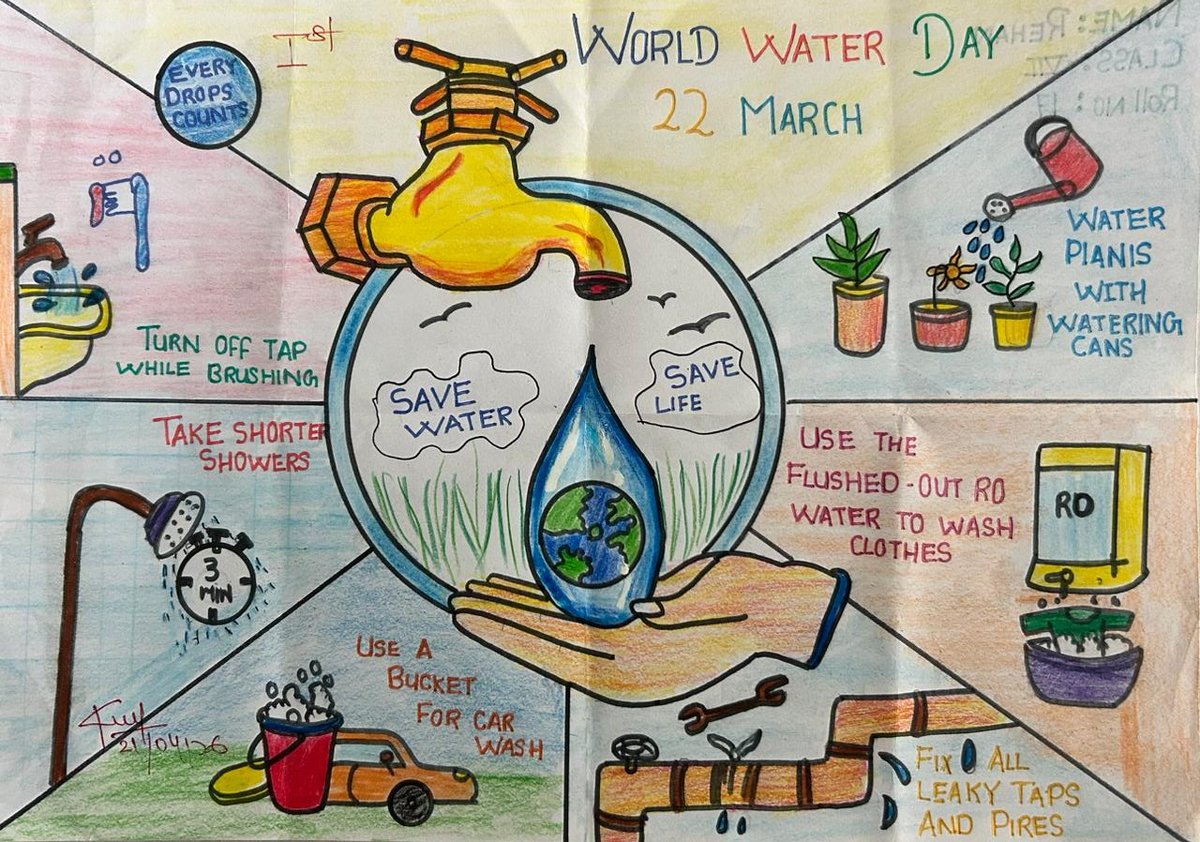 Ist
WORLD WATER DAY
22 MARCH
NAME: REHA
CLASS: VII
ROLL NO: 17
EVERY
DROPS
COUNTS
TURN OFF TAP
WHILE BRUSHING
WATER
PIANIS
WITH
WATERING
CANS
SAVE
WATER
SAVE
LIFE
TAKE SHORTER
SHOWERS
3
MIN
USE THE
FLUSHED-OUT RO
WATER TO WASH
CLOTHES
RO
USE A
BUCKET
FOR CAR
WASH
FIX ALL
LEAKY TAPS
AND PIRES
21/04/26